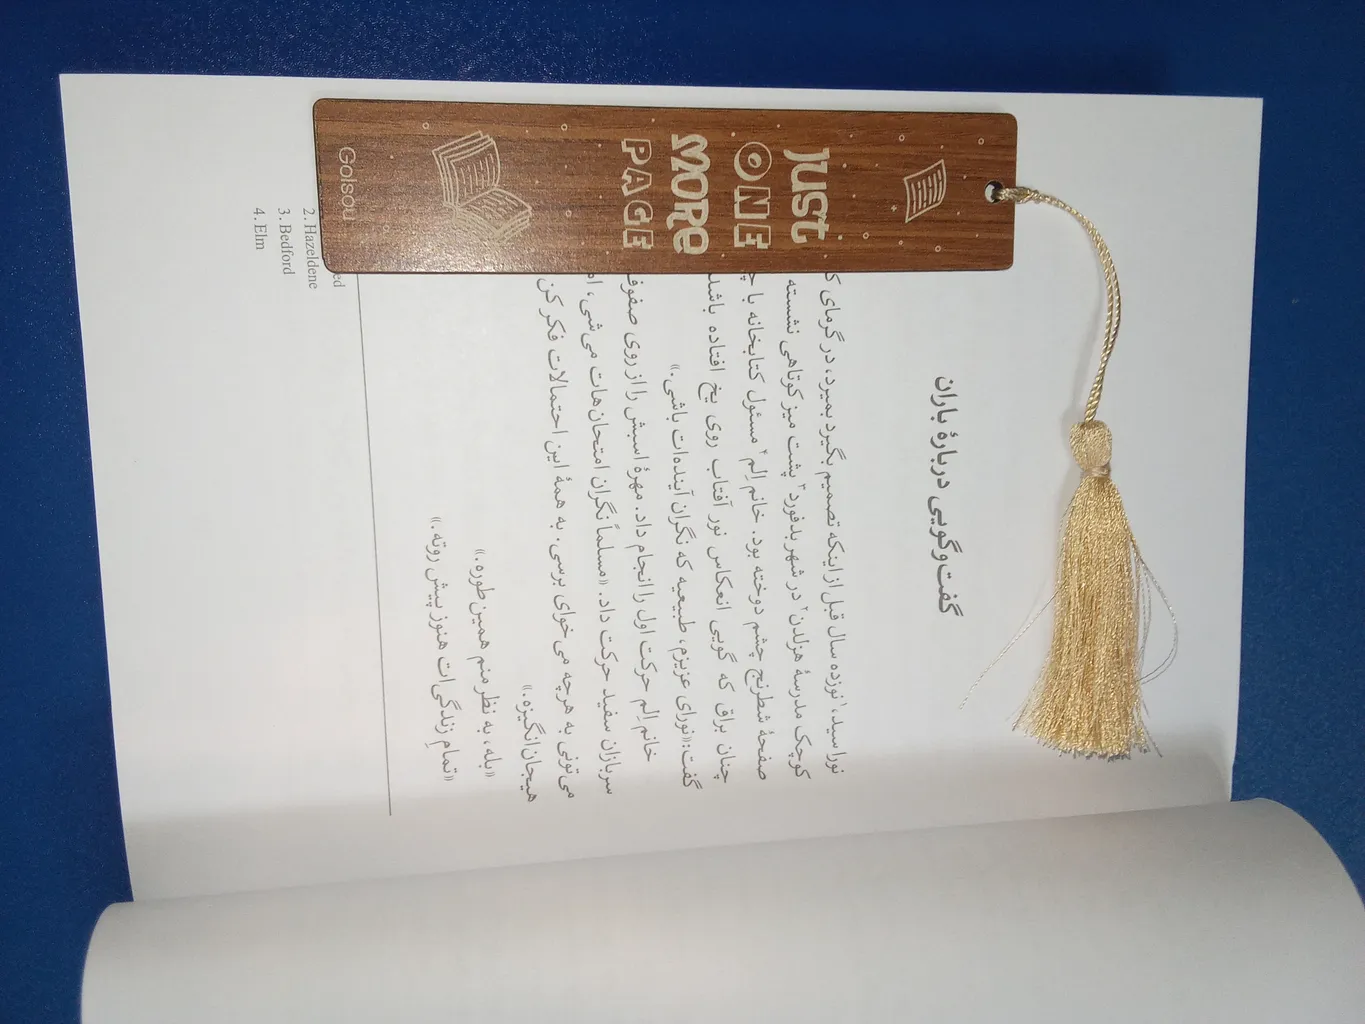 JUST
ONE
MORE
PAGE
Golsou
گفت‌وگویی دربارهٔ باران
نورا سید،۱ نوزده سال قبل از اینکه تصمیم بگیرد بمیرد، در گرمای
کوچک مدرسهٔ هزلدن۲ در شهر بدفورد۳ پشت میز کوتاهی نشسته
صفحهٔ شطرنج چشم دوخته بود. خانم اِلم۴ مسئول کتابخانه با
چنان براق که گویی انعکاس نور آفتاب روی یخ افتاده باشد
گفت: «نورای عزیزم، طبیعیه که نگران آینده‌ات باشی.»
خانم اِلم حرکت اول را انجام داد. مهرهٔ اسبش را از روی
سربازان سفید حرکت داد. «مسلماً نگران امتحان‌هات می‌شی،
می‌تونی به هرچه می‌خوای برسی. به همهٔ این احتمالات فکر کن
هیجان‌انگیزه.»
«بله، به نظر منم همین طوره.»
«تمامِ زندگی‌ات هنوز پیش روته.»
2. Hazeldene
3. Bedford
4. Elm